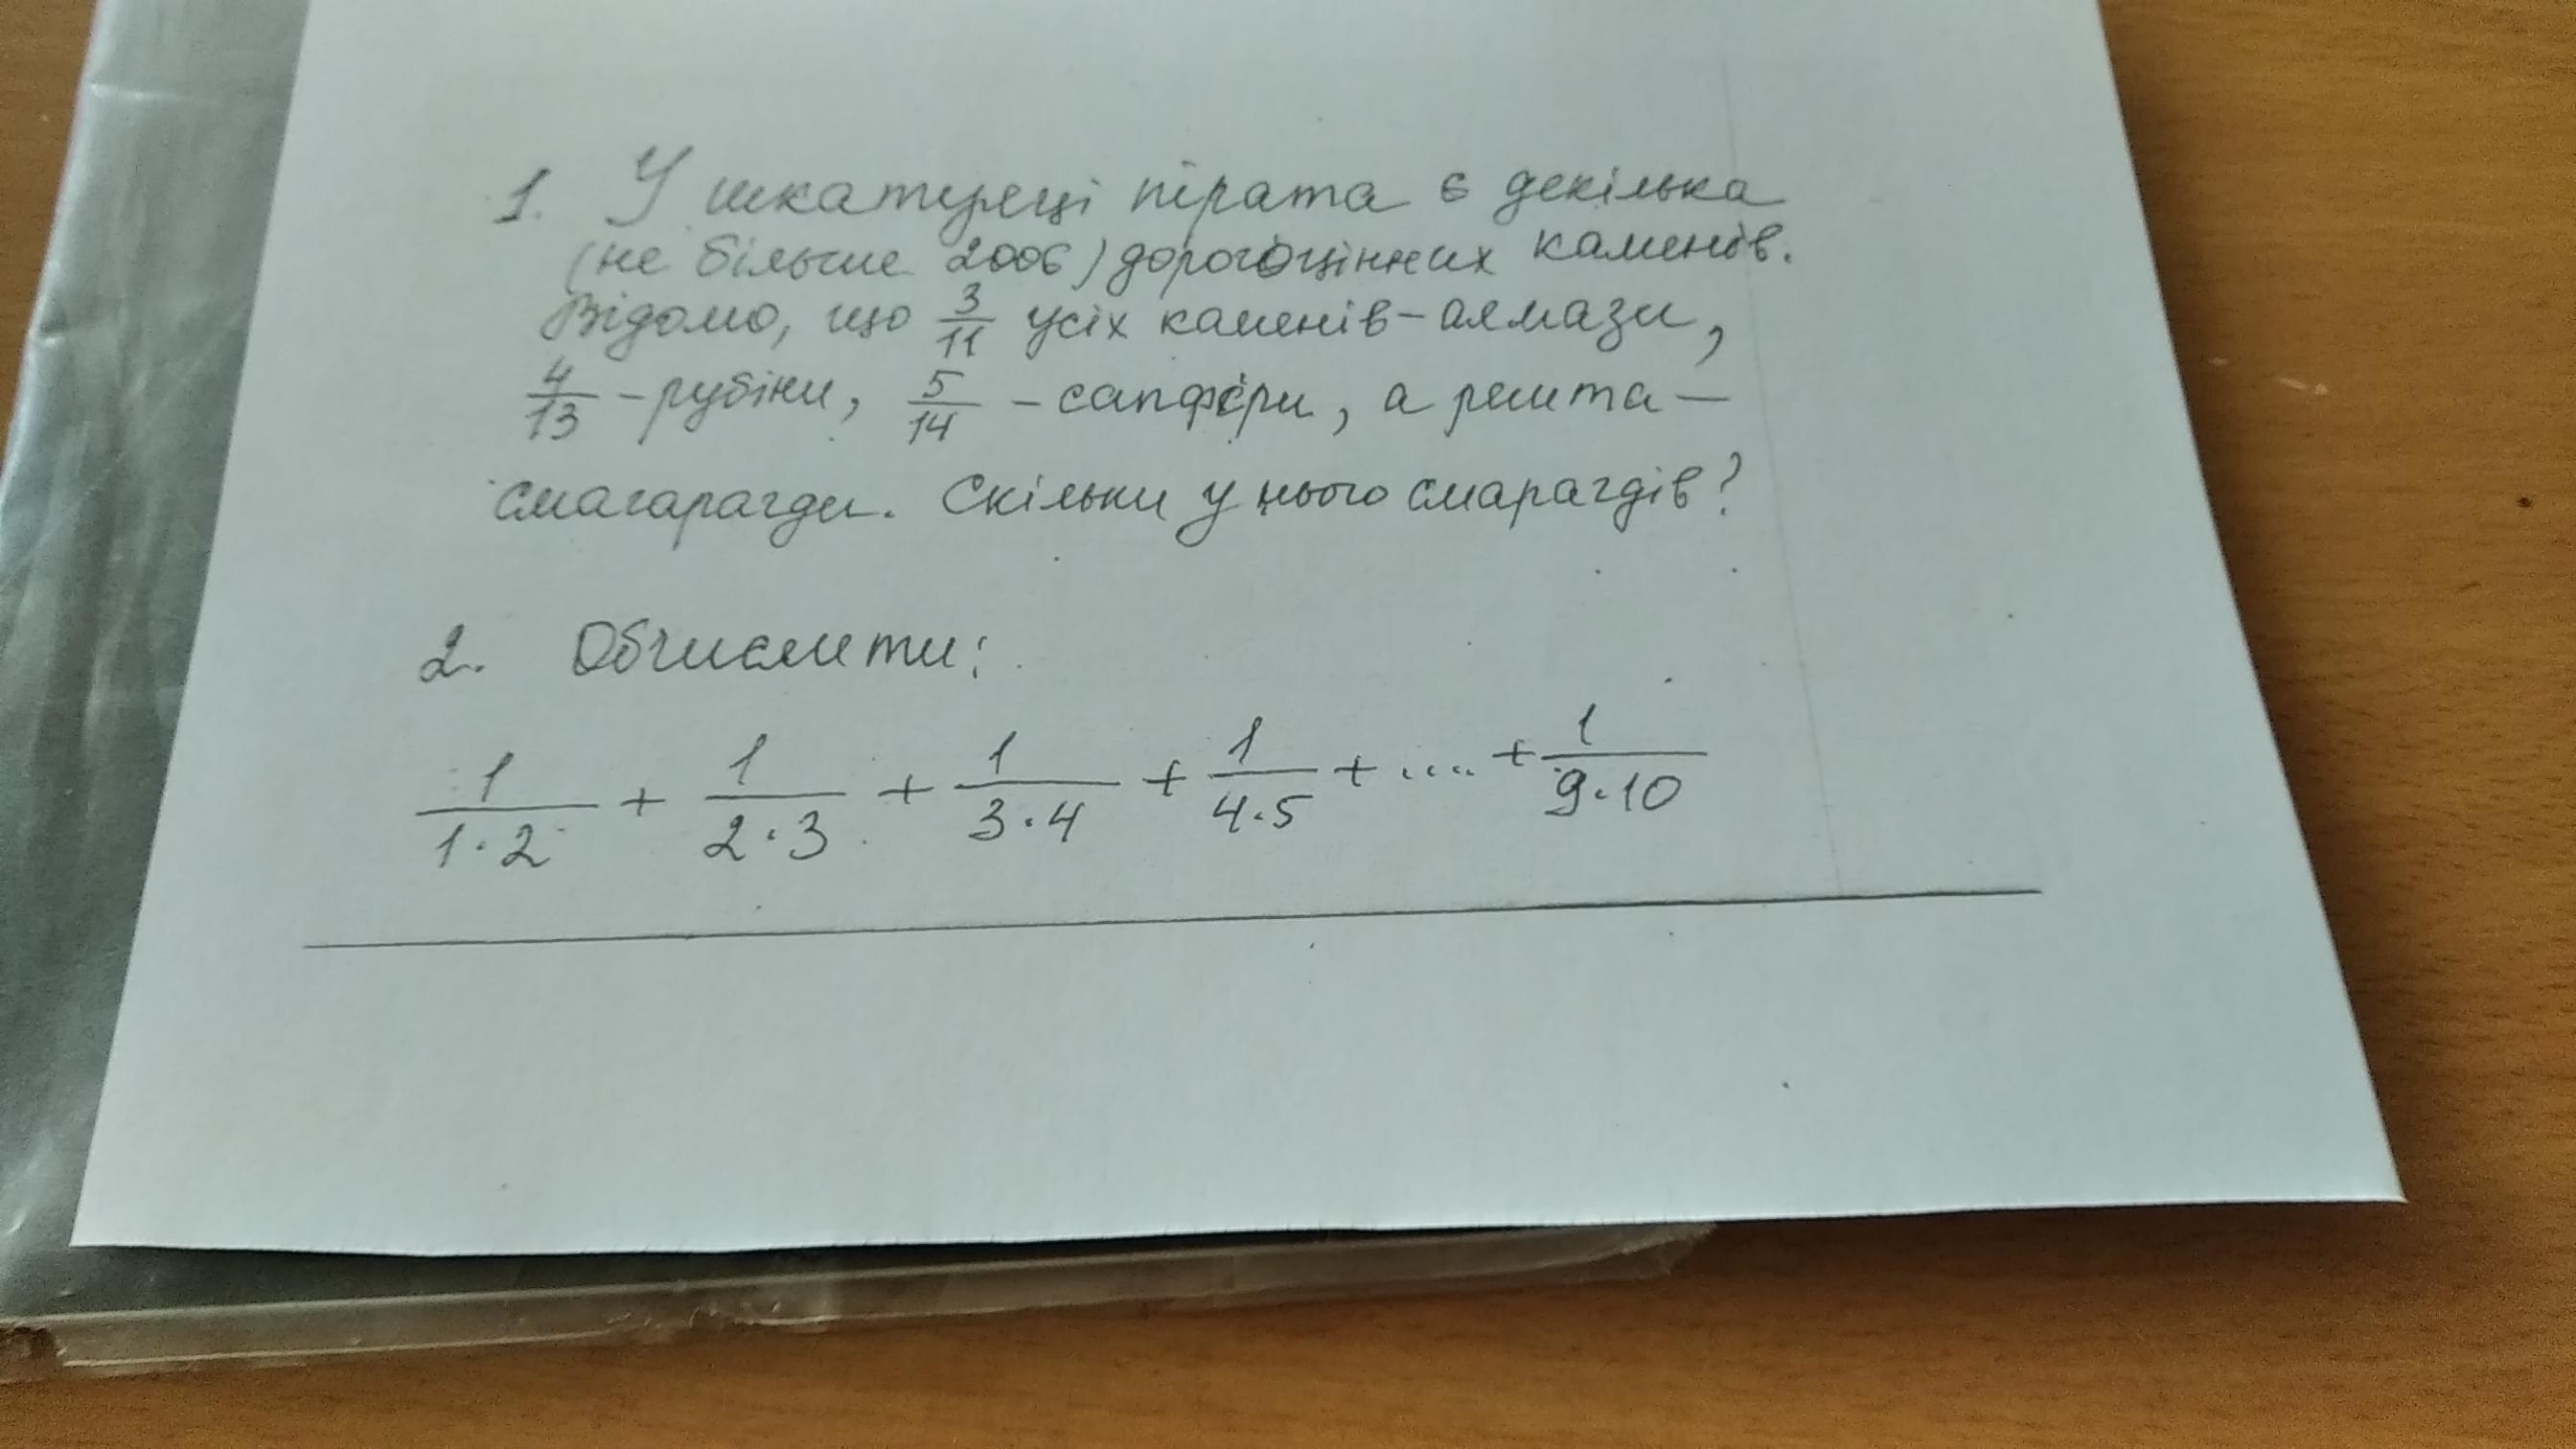 1. У шкатулці пірата є декілька
(не більше 2006) дорогоцінних каменів.
Відомо, що 3/11 усіх каменів - алмази,
4/13 - рубіни, 5/14 - сапфіри, а решта -
смагарагди. Скільки у нього смарагдів?
2. Обчислити:
1/(1·2) + 1/(2·3) + 1/(3·4) + 1/(4·5) + .... + 1/(9·10)